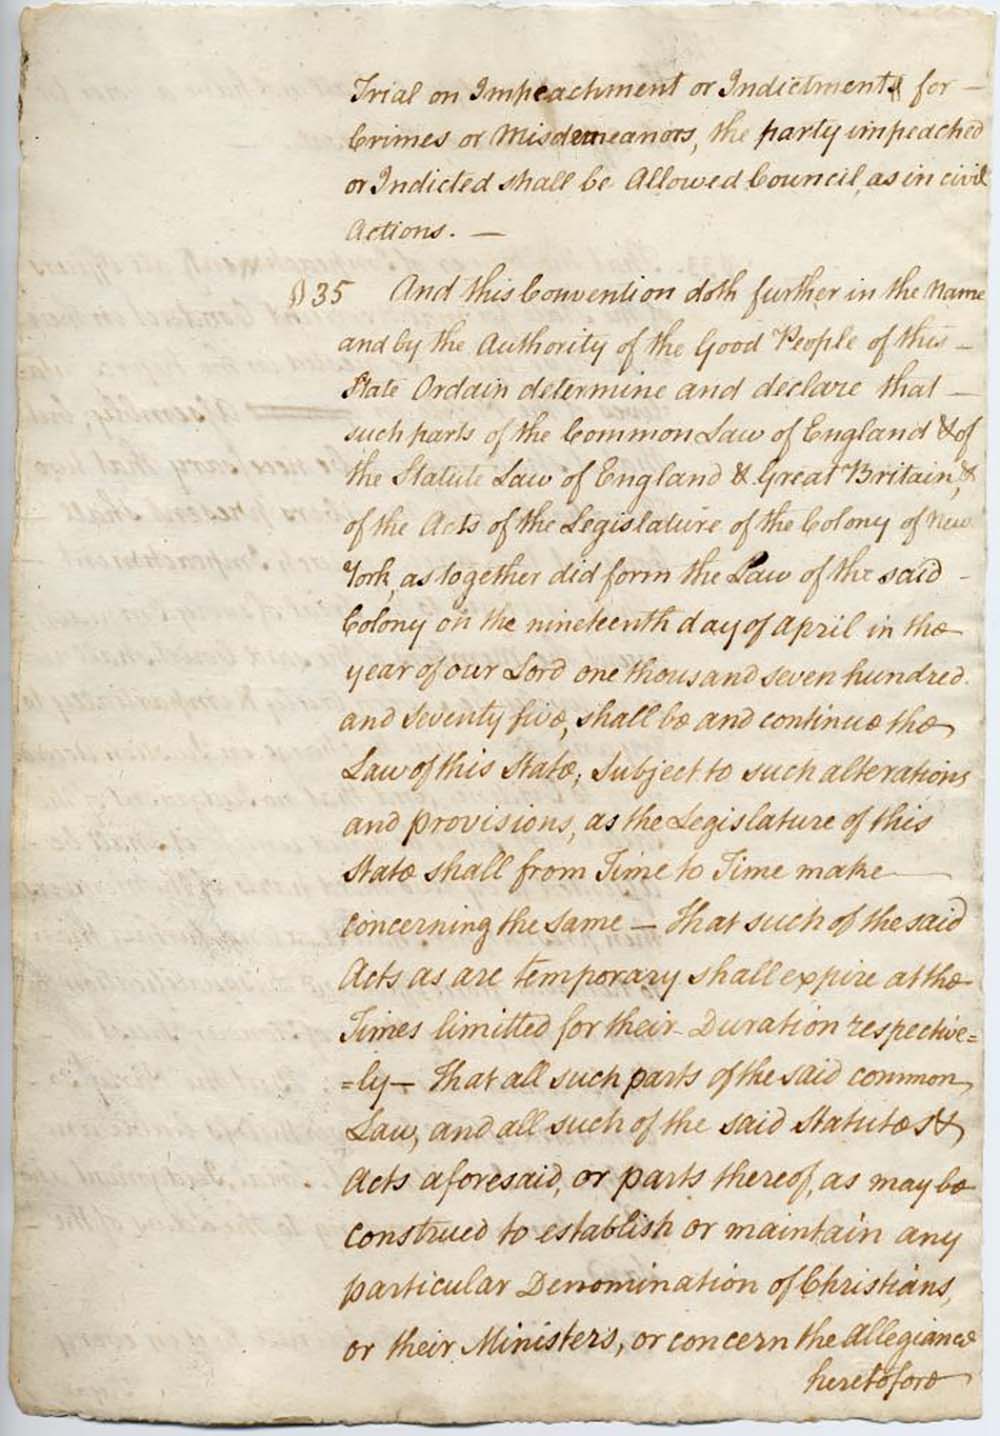 Trial on Impeachment or Indictments for —
Crimes or Misdemeanors, the party impeached
or Indicted shall be Allowed Council, as in civil
Actions. —
§ 35 And this Convention doth further in the Name
and by the Authority of the Good People of this —
State Ordain determine and declare that —
such parts of the Common Law of England & of
the Statute Law of England & Great Britain, &
of the Acts of the Legislature of the Colony of New
York, as together did form the Law of the said —
Colony on the nineteenth day of April in the
year of our Lord one thousand seven hundred
and seventy five, shall be and continue the
Law of this State; Subject to such alterations
and provisions, as the Legislature of this
State shall from Time to Time make —
concerning the Same — That such of the said
Acts as are temporary shall expire at the
Times limitted for their Duration respective=
=ly — That all such parts of the said common
Law, and all such of the said Statutes &
Acts aforesaid, or parts thereof, as may be
construed to establish or maintain any
particular Denomination of Christians,
or their Ministers, or concern the Allegiance
heretofore